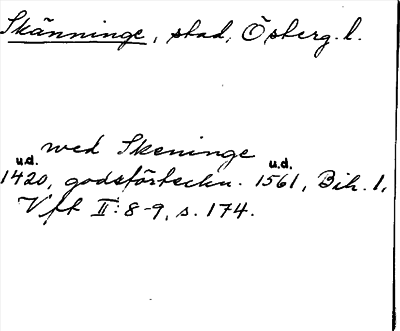 Skänninge, stad, Österg. l.
med Skeninge
u.d. u.d.
1420, godsförteckn. 1561, Bih. 1,
Vft II: 8-9, s. 174.